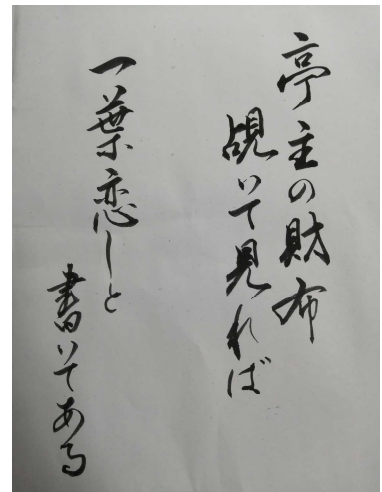 亭主の財布
覗いて見れば
一葉恋しと
書いてある